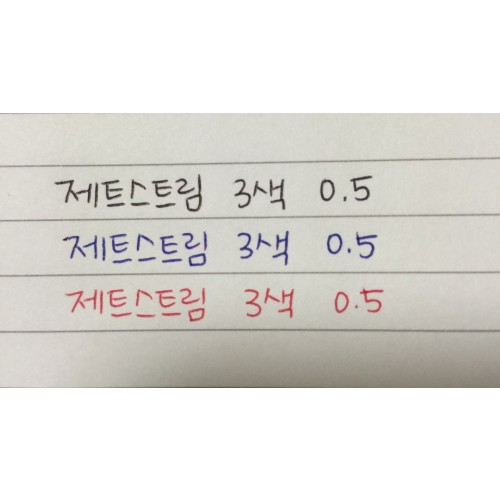 제트스트림 3색 0.5
제트스트림 3색 0.5
제트스트림 3색 0.5